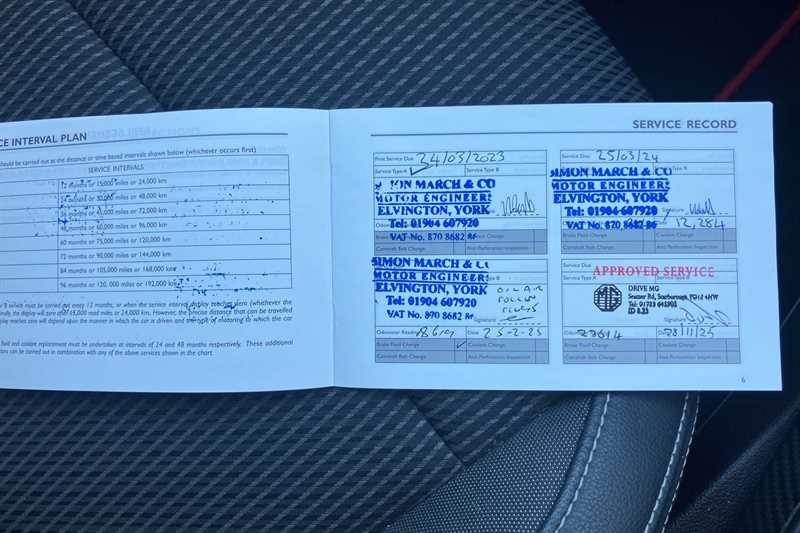 CE INTERVAL PLAN
should be carried out at the distance or time based intervals shown below (whichever occurs first)
SERVICE INTERVALS
12 months or 15,000 miles or 24,000 km
24 months or 30,000 miles or 48,000 km
36 months or 45,000 miles or 72,000 km
48 months or 60,000 miles or 96,000 km
60 months or 75,000 miles or 120,000 km
72 months or 90,000 miles or 144,000 km
84 months or 105,000 miles or 168,000 km
96 months or 120, 000 miles or 192,000 km
B which must be carried out every 12 months, or when the service interval display reaches zero (whichever the
display will zero after 15,000 road miles or 24,000 km, However, the precise distance that can be travelled
display reaches zero will depend upon the manner in which the car is driven and the type of motoring to which the car
fluid and coolant replacement must be undertaken at intervals of 24 and 48 months respectively. These additional
can be carried out in combination with any of the above services shown in the chart.
SERVICE RECORD
First Service Due 24/03/2023
Service Type A Service Type B
MON MARCH & CO
MOTOR ENGINEERS
ELVINGTON, YORK
Tel: 01904 607920
VAT No. 870 8682
Brake Fluid Change Coolant Change
Camshaft Belt Change Anti-Perforation Inspection
Service Due 25/03/24
Service Type A Service Type B
SIMON MARCH & CO
MOTOR ENGINEERS
ELVINGTON, YORK
Tel: 01904 607920
VAT No. 870 8682
12,284
Brake Fluid Change Coolant Change
Camshaft Belt Change Anti-Perforation Inspection
SIMON MARCH &
MOTOR ENGINEERS
ELVINGTON, YORK
Tel: 01904 607920
VAT No. 870 8682
OIL AIR
POLLEN
Signature
Odometer Reading Date 25-2-25
Brake Fluid Change Coolant Change
Camshaft Belt Change Anti-Perforation Inspection
Service Due
APPROVED SERVICE
MG
DRIVE MG
Seamer Rd, Scarborough, YO12 4HW
Signature
Date 28/11/25
Brake Fluid Change Coolant Change
Camshaft Belt Change Anti-Perforation Inspection
6